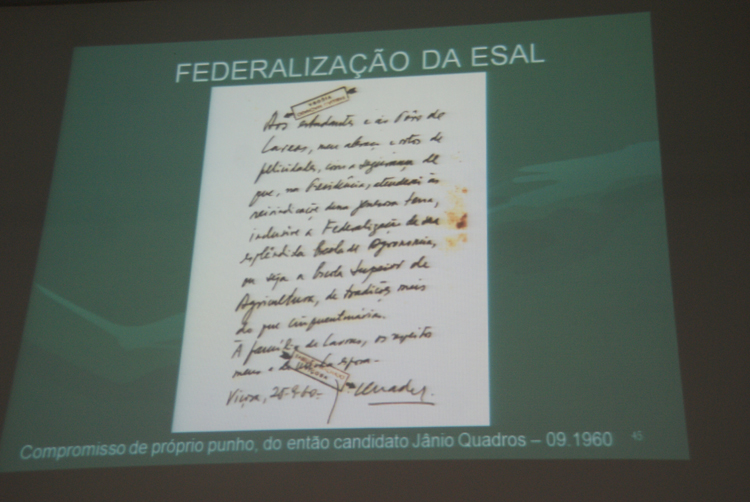 FEDERALIZAÇÃO DA ESAL
Aos estudantes e ao Povo de
Lavras, meu abraço e votos de
felicidades, com a segurança de
que, na Presidência, atenderei às
reivindicações dessa generosa terra,
inclusive a Federalização de sua
esplêndida Escola de Agronomia,
ou seja a Escola Superior de
Agricultura, de tradições mais
do que cinquentenária.
À família de Lavras, os respeitos
meus e de minha esposa -
Viçosa, 25-9-60.
Compromisso de próprio punho, do então candidato Jânio Quadros – 09.1960
45